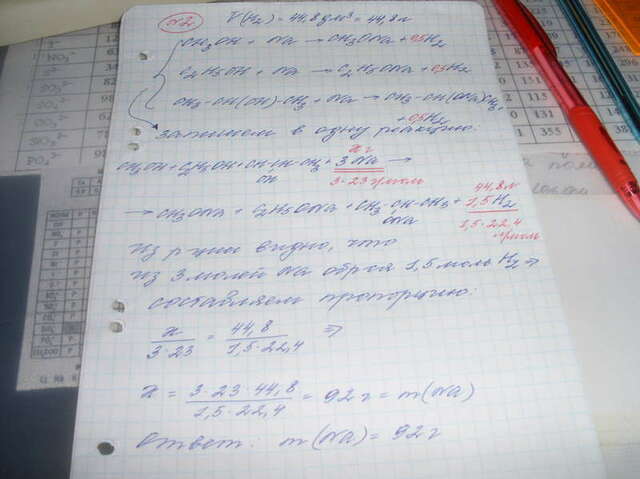 №2 V(H₂) = 44,8 дм³ = 44,8 л
CH₃OH + Na → CH₃ONa + 0,5H₂
C₂H₅OH + Na → C₂H₅ONa + 0,5H₂
CH₃-CH(OH)-CH₃ + Na → CH₃-CH(ONa)CH₃
+ 0,5H₂
запишем в одну реакцию:
x г
CH₃OH + C₂H₅OH + CH₃-CH-CH₃ + 3Na →
OH 3·23 г/моль
44,8 л
→ CH₃ONa + C₂H₅ONa + CH₃-CH-CH₃ + 1,5H₂
ONa 1,5·22,4
л/моль
Из р-ции видно, что
из 3 молей Na обр-ся 1,5 моль H₂ ⇒
составляем пропорцию:
x / 3·23 = 44,8 / 1,5·22,4 ⇒
x = 3·23·44,8 / 1,5·22,4 = 92 г = m(Na)
Ответ: m(Na) = 92 г